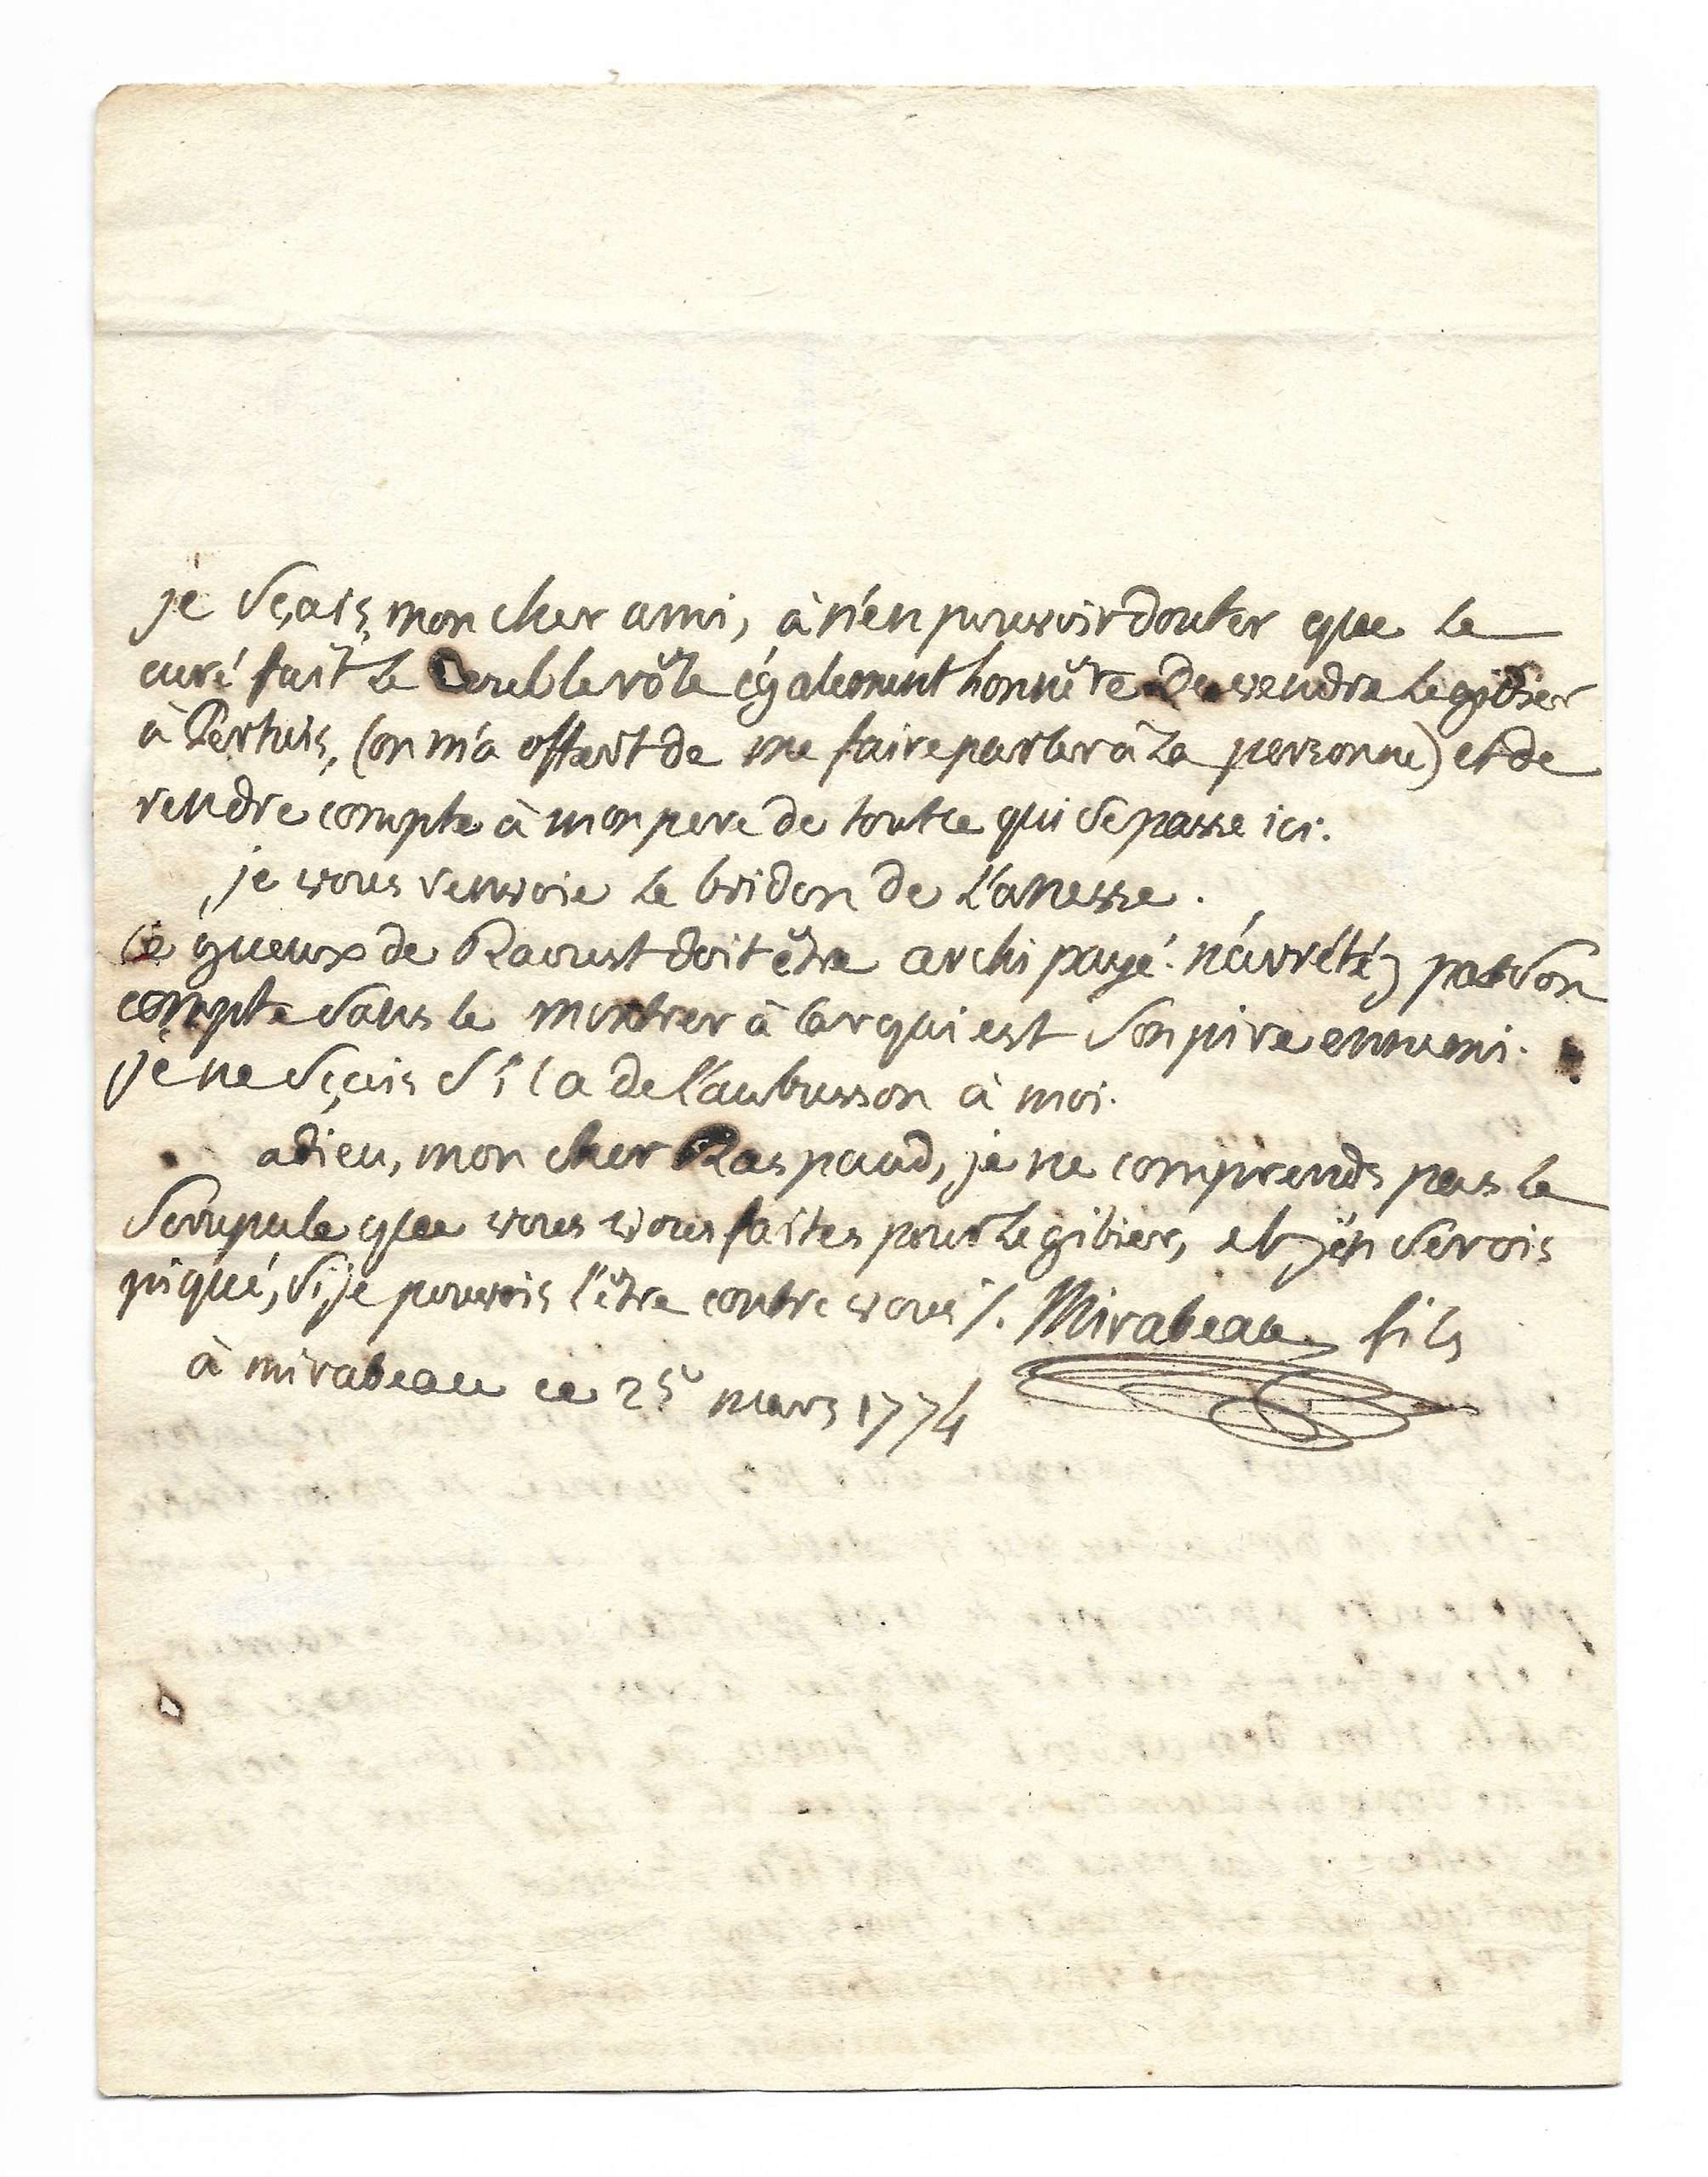 je sçais, mon cher ami, à n'en pouvoir douter que le
curé fait le double rôle également honnête de vendre le gibier
à Pertuis, (on m'a offert de me faire parler à la personne) et de
rendre compte à mon pere de tout ce qui se passe ici.
je vous renvoie le bridon de l'anesse.
ce gueux de Raoust doit être archi payé. n'arrétéz pas son
compte sans le montrer à lar qui est son pire ennemi.
je ne sçais s'il a de l'aubusson à moi.
adieu, mon cher Raspaud, je ne comprends pas le
scrupule que vous vous faites pour le gibier, et j'en serois
piqué, si je pouvois l'être contre vous /. Mirabeau fils
à mirabeau ce 25 mars 1774